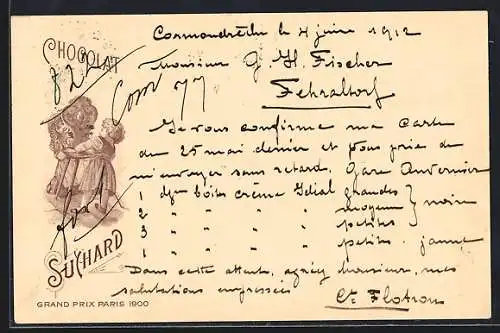 CHOCOLAT
822
Com 77
SUCHARD
GRAND PRIX PARIS 1900
Cormondrèche le 4 juin 1912
Monsieur G. H. Fischer
Fehraltorf
Je vous confirme ma carte
du 25 mai dernier et vous prie de
m'envoyer sans retard. Gare Auvernier
1 dzne boîtes crème Idéal grandes } noire
2 " " " " moyenn
3 " " " " petites
1 " " " " petite. jaune
Dans cette attente, agréez Monsieur, mes
salutations empressées
Flotron